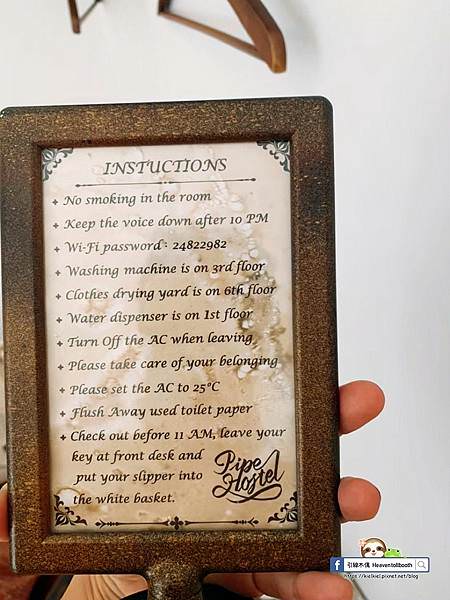 INSTUCTIONS
No smoking in the room
Keep the voice down after 10 PM
Wi-Fi password：24822982
Washing machine is on 3rd floor
Clothes drying yard is on 6th floor
Water dispenser is on 1st floor
Turn Off the AC when leaving
Please take care of your belonging
Please set the AC to 25°C
Flush Away used toilet paper
Check out before 11 AM, leave your
key at front desk and
put your slipper into
the white basket.
Pipe
Hostel
引線不偶 Heaventollbooth
https://kielkiel.pixnet.net/blog